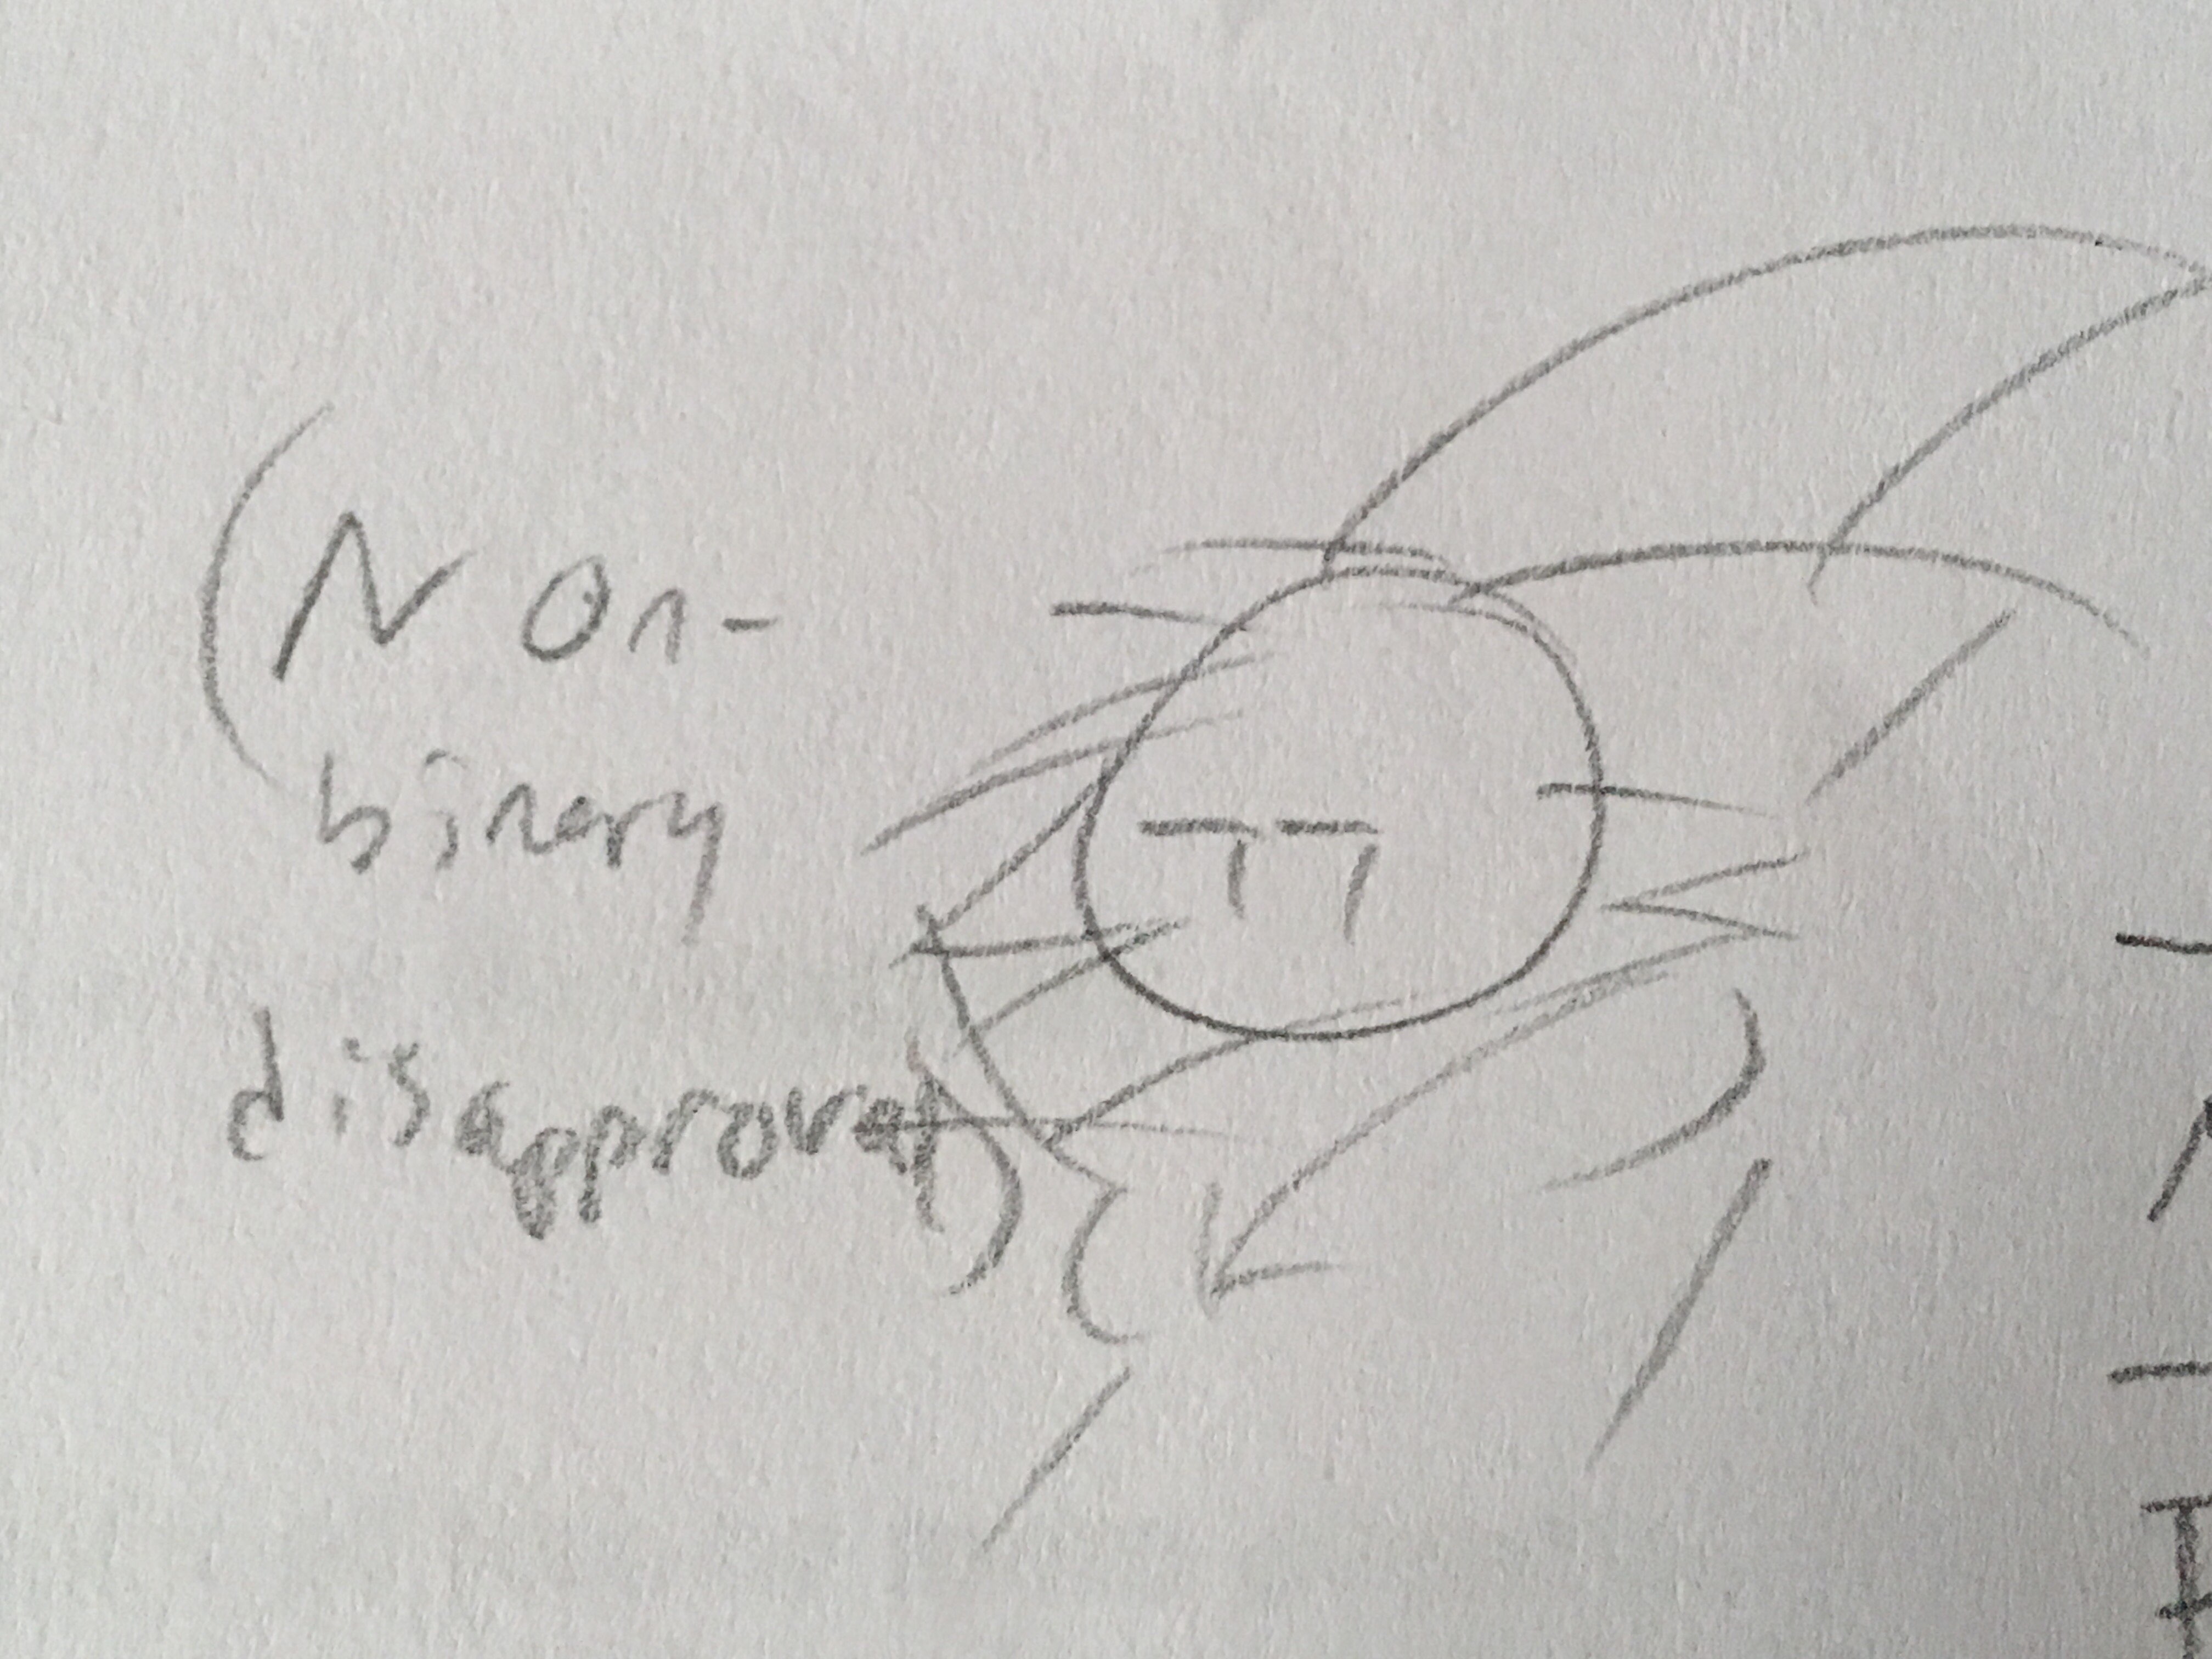 (Non-
binary
disapproval)